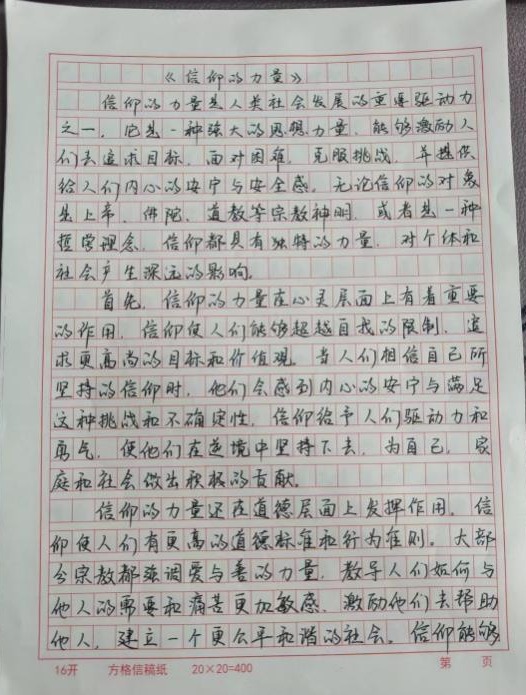 《信仰的力量》
信仰的力量是人类社会发展的重要驱动力
之一，它是一种强大的思想力量，能够激励人
们去追求目标，面对困难，克服挑战，并提供
给人们内心的安宁与安全感。无论信仰的对象
是上帝、佛陀、道教等宗教神明，或者是一种
哲学理念，信仰都具有独特的力量，对个体和
社会产生深远的影响。
首先，信仰的力量在心灵层面上有着重要
的作用，信仰使人们能够超越自我的限制，追
求更高尚的目标和价值观。当人们相信自己所
坚持的信仰时，他们会感到内心的安宁与满足
这种挑战和不确定性，信仰给予人们驱动力和
勇气，使他们在逆境中坚持下去，为自己，家
庭和社会做出积极的贡献。
信仰的力量还在道德层面上发挥作用。信
仰使人们有更高的道德标准和行为准则。大部
分宗教都强调爱与善的力量，教导人们如何与
他人的需要和痛苦更加敏感，激励他们去帮助
他人，建立一个更公平和谐的社会。信仰能够
16开 方格信稿纸 20×20=400 第 页